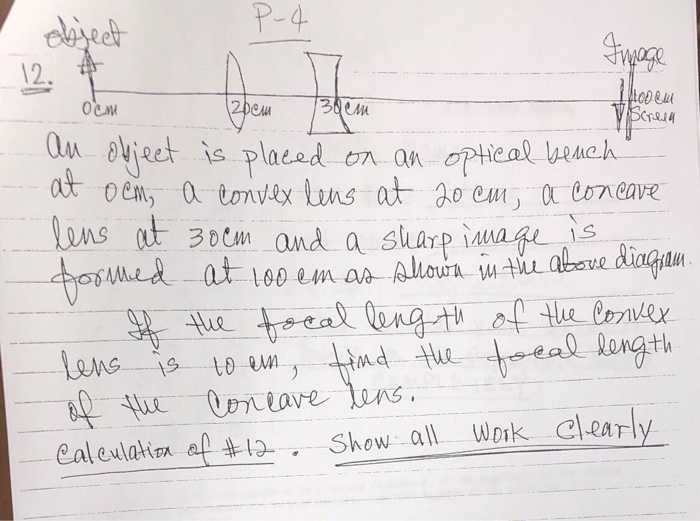 P-4
object
Image
12.
0cm
20cm
30cm
100cm
Screen
An object is placed on an optical bench
at 0cm, a convex lens at 20 cm, a concave
lens at 30cm and a sharp image is
formed at 100 cm as shown in the above diagram.
If the focal length of the convex
lens is 10 cm, find the focal length
of the concave lens.
Calculation of #12. Show all work clearly